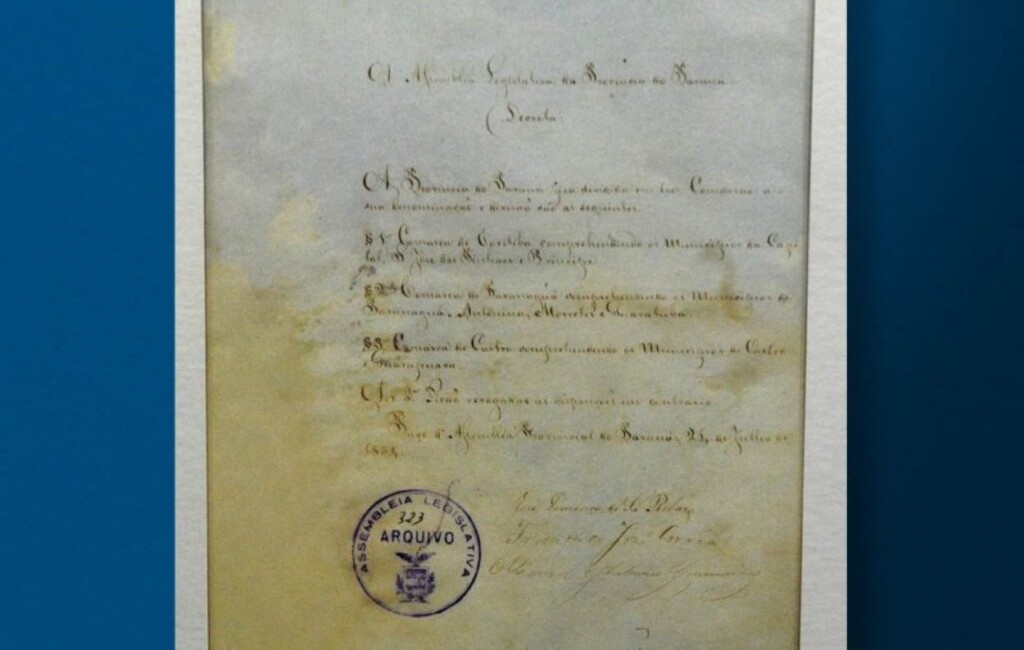 A Assembléa Legislativa da Provincia do Paraná
Decreta:
A Provincia do Paraná fica dividida em tres Comarcas: a
sua denominação e divisão são as seguintes
§ 1º Comarca de Coritiba comprehendendo os Municipios da Capi
tal, S. José dos Pinhaes e Principe.
§ 2º Comarca de Paranaguá comprehendendo os Municipios de
Paranaguá, Antonina, Morretes e Guaratuba.
§ 3º Comarca de Castro comprehendendo os Municipios de Castro
e Guarapuava.
Art 2º Ficão revogadas as disposições em contrario.
Paço d' Assembléa Provincial do Paraná, 24 de Julho de
1854.
ASSEMBLEIA LEGISLATIVA
323
ARQUIVO
José
Francisco José Corrêa